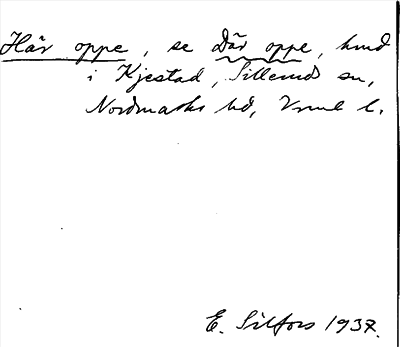 Här oppe, se Där oppe, hmd
i Kjestad, Sillerud sn,
Nordmarks hd, Vrml l.
E. Silfors 1937.